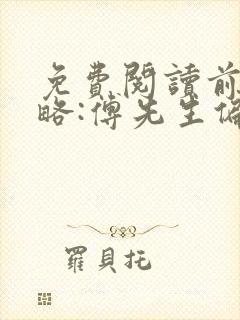 免費閱讀前
略:傅先生偏
羅貝托